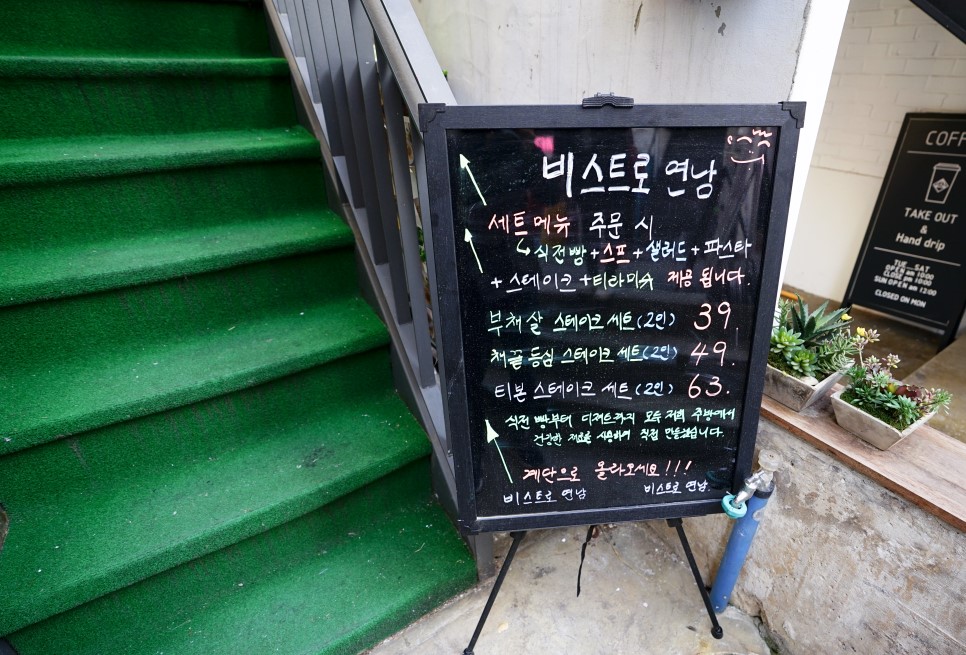 비스트로 연남
세트메뉴 주문 시
식전빵+스프+샐러드+파스타
+스테이크+티라미수 제공 됩니다.
부채살 스테이크 세트(2인) 39.
채끝등심 스테이크 세트(2인) 49.
티본 스테이크 세트(2인) 63.
식전 빵부터 디저트까지 모두 저희 주방에서
건강한 재료를 사용하여 직접 만들었습니다.
계단으로 올라오세요!!!
비스트로 연남 비스트로 연남
COFF
TAKE OUT
&
Hand drip
TUE - SAT
OPEN am 10:00
CLOSE pm 10:00
SUN OPEN am 12:00
CLOSED ON MON